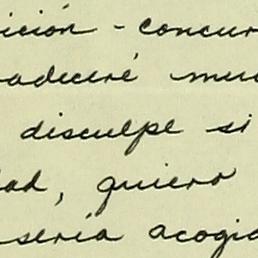 ición - concur
adeceré muc
disculpe si
dad, quiero
sería acogid